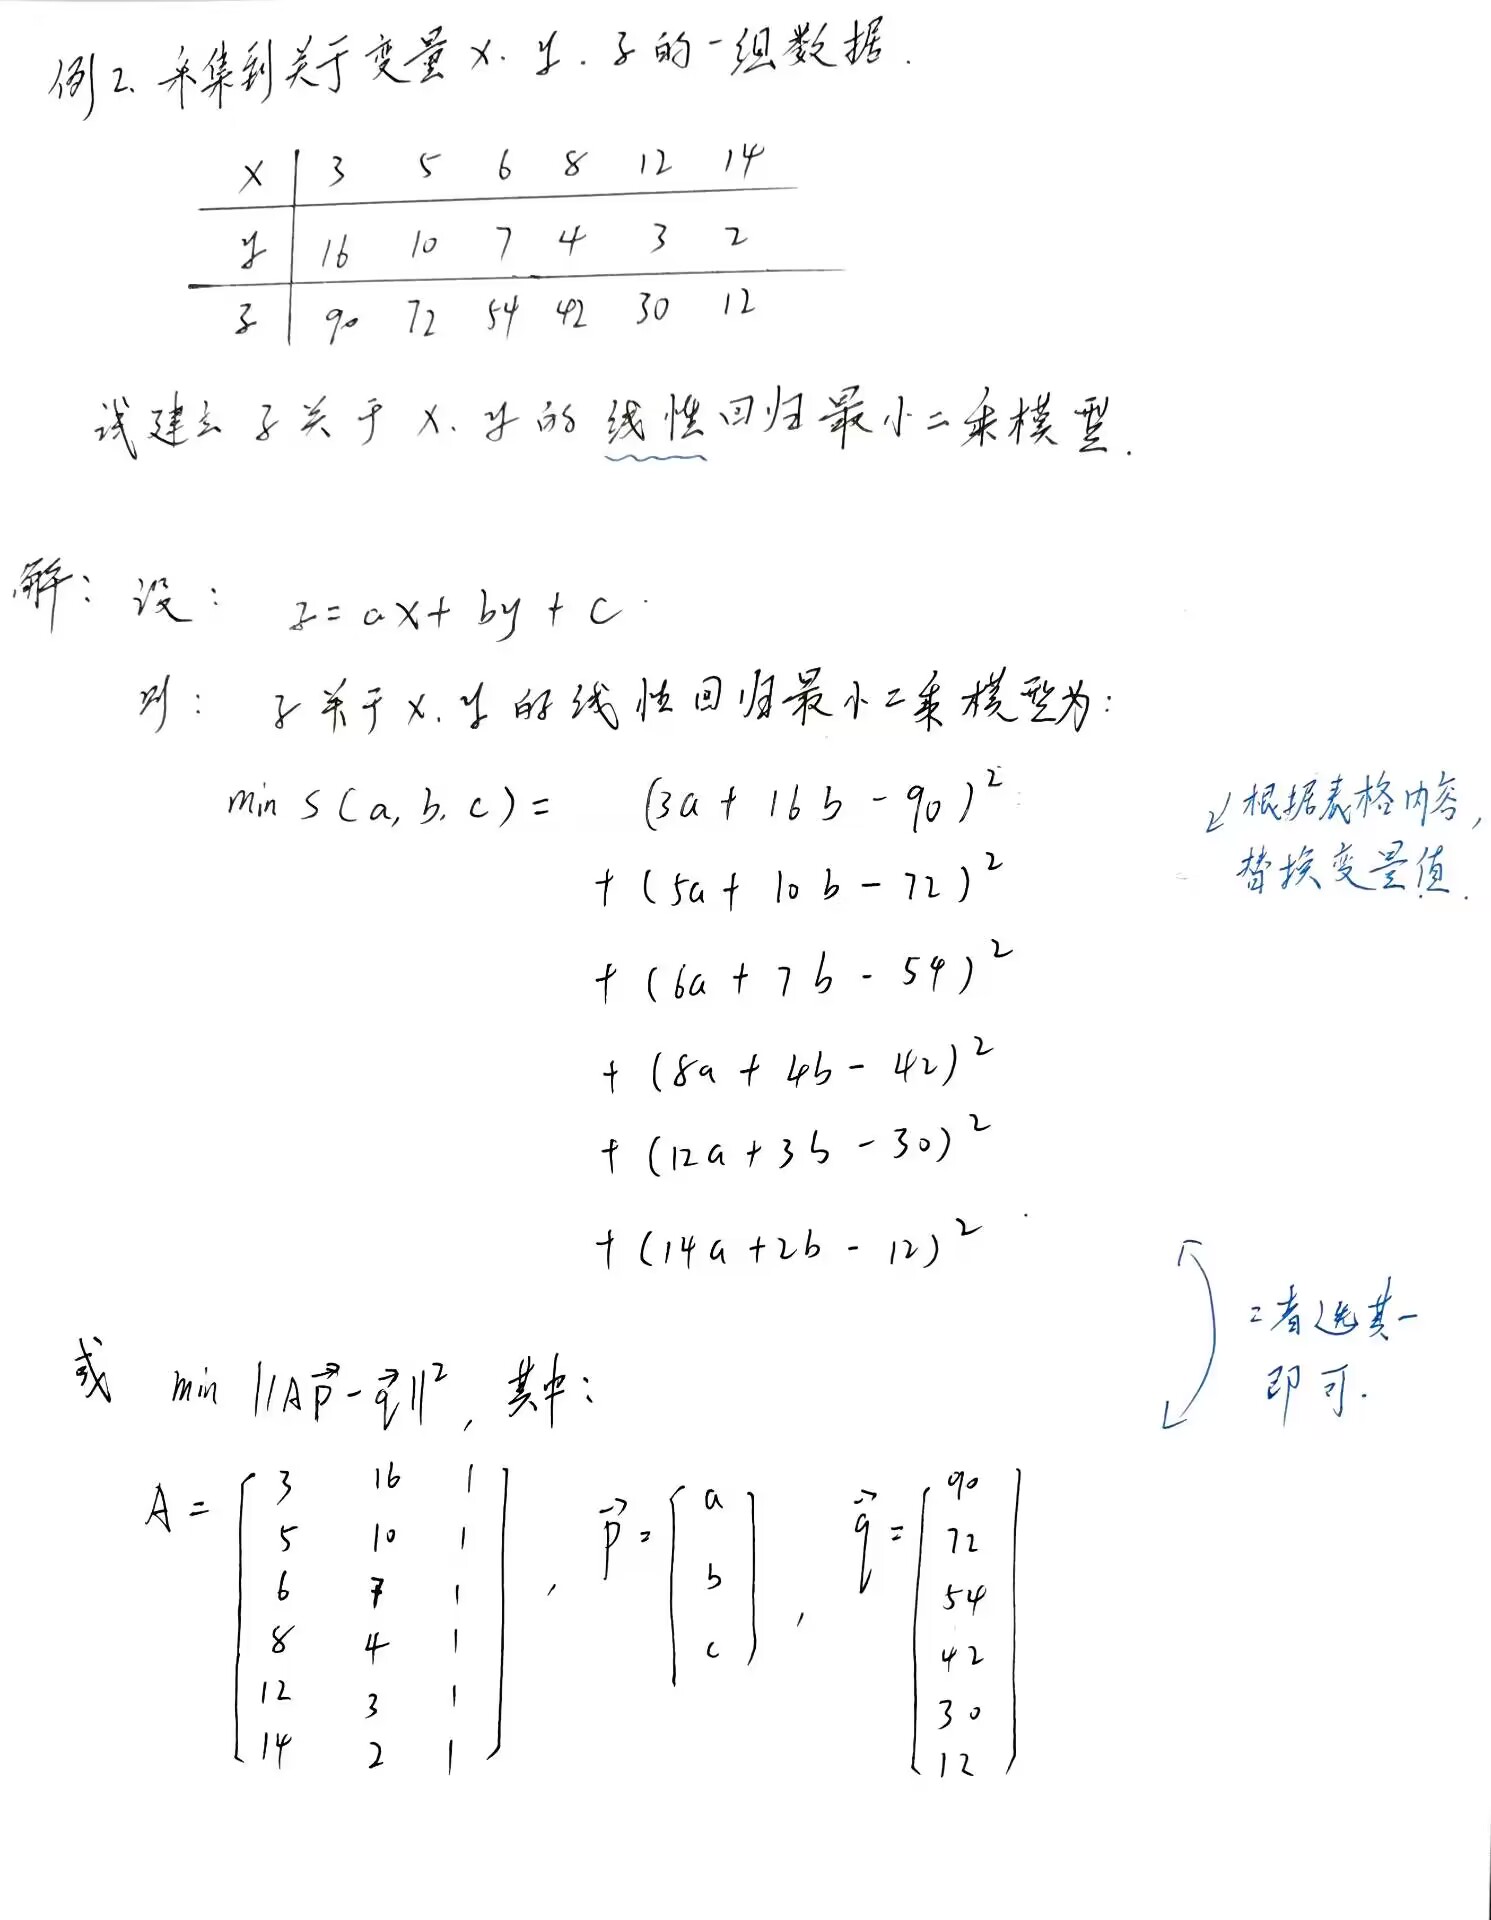 例2. 采集到关于变量 x. y. z 的一组数据.
x 3 5 6 8 12 14
y 16 10 7 4 3 2
z 90 72 54 42 30 12
试建立 z 关于 x. y 的线性回归最小二乘模型.
解: 设: z = ax + by + c.
则: z 关于 x. y 的线性回归最小二乘模型为:
min S(a, b, c) = (3a + 16b - 90)²
+ (5a + 10b - 72)²
↙根据表格内容,
替换变量值.
+ (6a + 7b - 54)²
+ (8a + 4b - 42)²
+ (12a + 3b - 30)²
+ (14a + 2b - 12)²
二者选其一
即可.
或 min ||Ap⃗ - q⃗||², 其中:
A = [3 16 1; 5 10 1; 6 7 1; 8 4 1; 12 3 1; 14 2 1], p⃗ = [a; b; c], q⃗ = [90; 72; 54; 42; 30; 12]